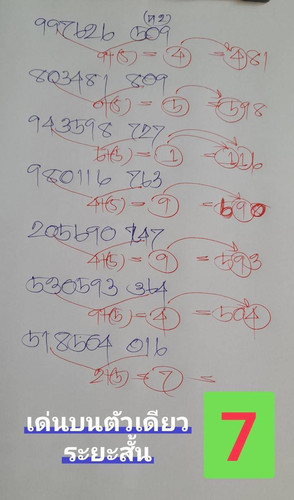 997626 509
9+(5) = 4 = 481
803481 809
0+(5) = 5 = 598
943598 727
6+(5) = 1 = 116
980116 763
4+(5) = 9 = 690
205690 747
4+(5) = 9 = 593
530593 364
9+(5) = 4 = 504
518504 016
2+(5) = 7 =
เด่นบนตัวเดียว
ระยะสั้น
7